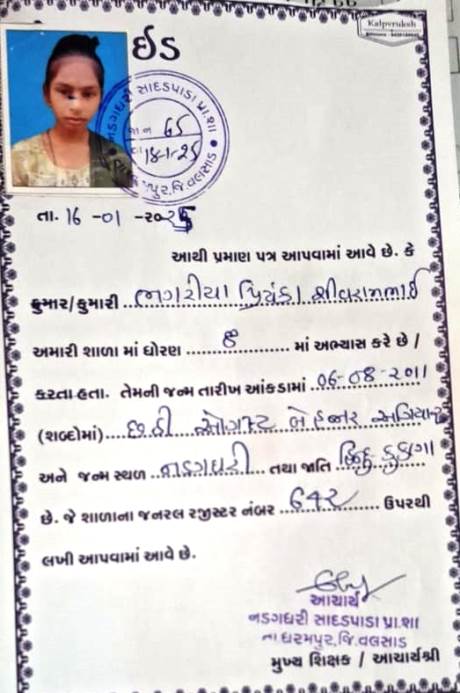 Kalpvruksh
ઈડ
નડગધરી સાદડપાડા પ્રા.શા
જા ન 65
તા 18-1-25
તા. 16 -01 -૨૦૨5
આથી પ્રમાણ પત્ર આપવામાં આવે છે. કે
કુમાર/કુમારી ભગરીયા પ્રિયંકા શ્રીવરામભાઈ
અમારી શાળા માં ધોરણ ૭ માં અભ્યાસ કરે છે /
કરતા હતા. તેમની જન્મ તારીખ આંકડામાં 06-08-૨૦11
(શબ્દોમાં) છઠ્ઠી ઓગષ્ટ બે હજાર અગિયાર
અને જન્મ સ્થળ નડગધરી તથા જાતિ હિન્દુ કુકણા
છે. જે શાળાના જનરલ રજીસ્ટર નંબર ૬૪૨ ઉપરથી
લખી આપવામાં આવે છે.
આચાર્ય
નડગધરી સાદડપાડા પ્રા.શા
તા ધરમપુર,જિ.વલસાડ
મુખ્ય શિક્ષક / આચાર્યશ્રી